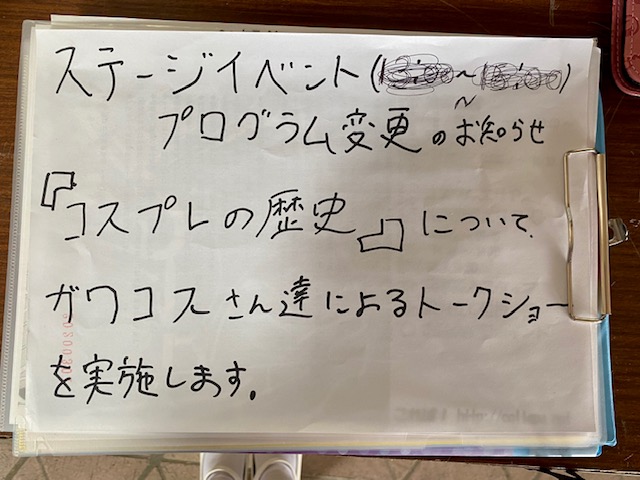 ステージイベント(13:00~15:00)
プログラム変更のお知らせ
『コスプレの歴史』について、
ガワコスさん達によるトークショー
を実施します。